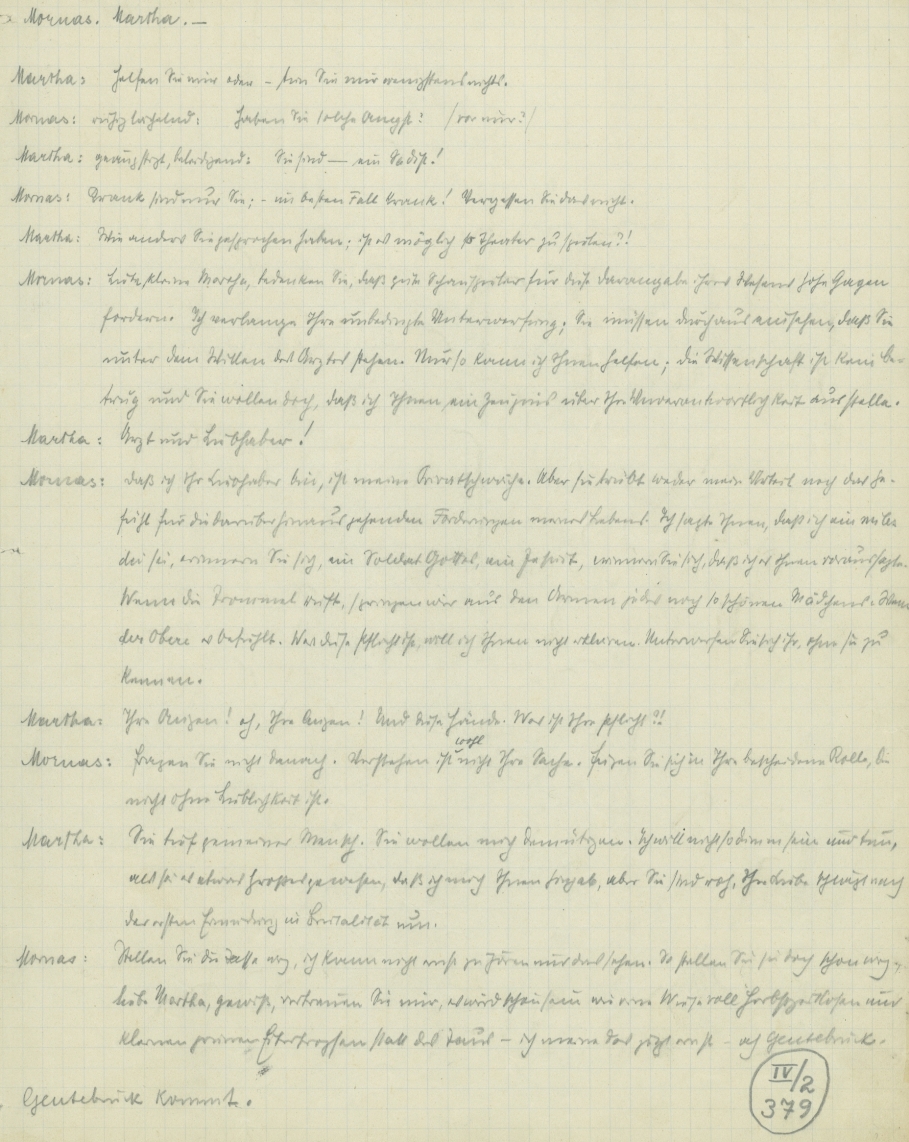 Mornas. Martha. —
Martha: Helfen Sie mir oder – tun Sie mir wenigstens nichts.
Mornas: ruhig lächelnd: Haben Sie solche Angst? (vor mir?)
Martha: geängstigt, beleidigend: Sie sind — ein Sadist!
Mornas: Krank sind nur Sie; – im besten Fall krank! Vergessen Sie das nicht.
Martha: Wie anders Sie gesprochen haben; ist es möglich so Theater zu spielen?!
Mornas: Liebe, kleine Martha, bedenken Sie, daß gute Schauspieler für diese Darangabe ihres Wesens hohe Gagen
fordern. Ich verlange Ihre unbedingte Unterwerfung; Sie müssen durchaus einsehen, daß Sie
unter dem Willen des Arztes stehen. Nur so kann ich Ihnen helfen; die Wissenschaft ist kein Be-
trug und Sie wollen doch, daß ich Ihnen ein Zeugnis über Ihre Unverantwortlichkeit ausstelle.
Martha: Arzt und Liebhaber!
Mornas: Daß ich Ihr Liebhaber bin, ist meine Privatschwäche. Aber sie trübt weder mein Urteil noch das Ge-
fühl für die darüber hinaus gehenden Forderungen meines Lebens. Ich sagte Ihnen, daß ich ein
sei, erinnern Sie sich, ein Soldat Gottes, ein Jesuit, erinnern Sie sich, daß ich es Ihnen voraussagte.
Wenn die Trommel ruft, springen wir aus den Armen jedes noch so schönen Mädchens. Wenn
der Obere es befiehlt. Was diese Pflicht ist, will ich Ihnen nicht erklären. Unterwerfen Sie sich ihr, ohne sie zu
kennen.
Martha: Ihre Augen! oh, Ihre Augen! Und diese Hände. Was ist Ihre Pflicht?!
Mornas: Fragen Sie nicht danach. Verstehen ist wohl nicht Ihre Sache. Fügen Sie sich in Ihre bescheidene Rolle, die
nicht ohne Lieblichkeit ist.
Martha: Sie tief gemeiner Mensch. Sie wollen mich demütigen. Ich will nicht so dumm sein und tun,
als sei es etwas Großes gewesen, daß ich mich Ihnen hingab, aber Sie sind roh, Ihre Liebe schlägt nach
der ersten Ermüdung in Brutalität um.
Mornas: Stellen Sie die Tasse weg, ich kann nicht ernst zu hören und das sehen. So stellen Sie sie doch schon weg –,
liebe Martha, gewiß, vertrauen Sie mir, es wird schön sein wie eine Wiese voll Herbstzeitlosen und
kleinen grünen Eitertropfen statt des Taus – ich meine das jetzt ernst – ah Gentebrück.
Gentebrück kommt.
IV/2
379